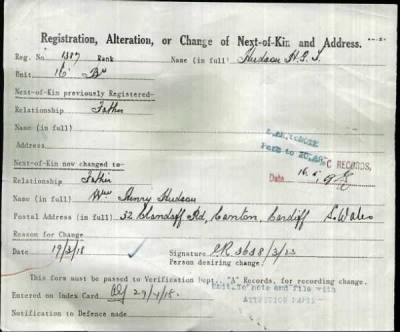 Registration, Alteration, or Change of Next-of-Kin and Address.
Reg. No 1317 Rank Name (in full) Hudson H.G.
Unit 16 Bn
Next-of-Kin previously Registered-
Relationship Father
Name (in full)
Address
Next-of-Kin now changed to-
Relationship Father
C RECORDS,
Name (in full) Wm Henry Hudson
Date 16.5.
Postal Address (in full) 52 Llandaff Rd, Canton, Cardiff S. Wales
Reason for Change
Date 19/3/18 Signature
Person desiring change
This form must be passed to Verification Dept., "A" Records, for recording change.
Entered on Index Card 29/4/18. note and file with
Notification to Defence made